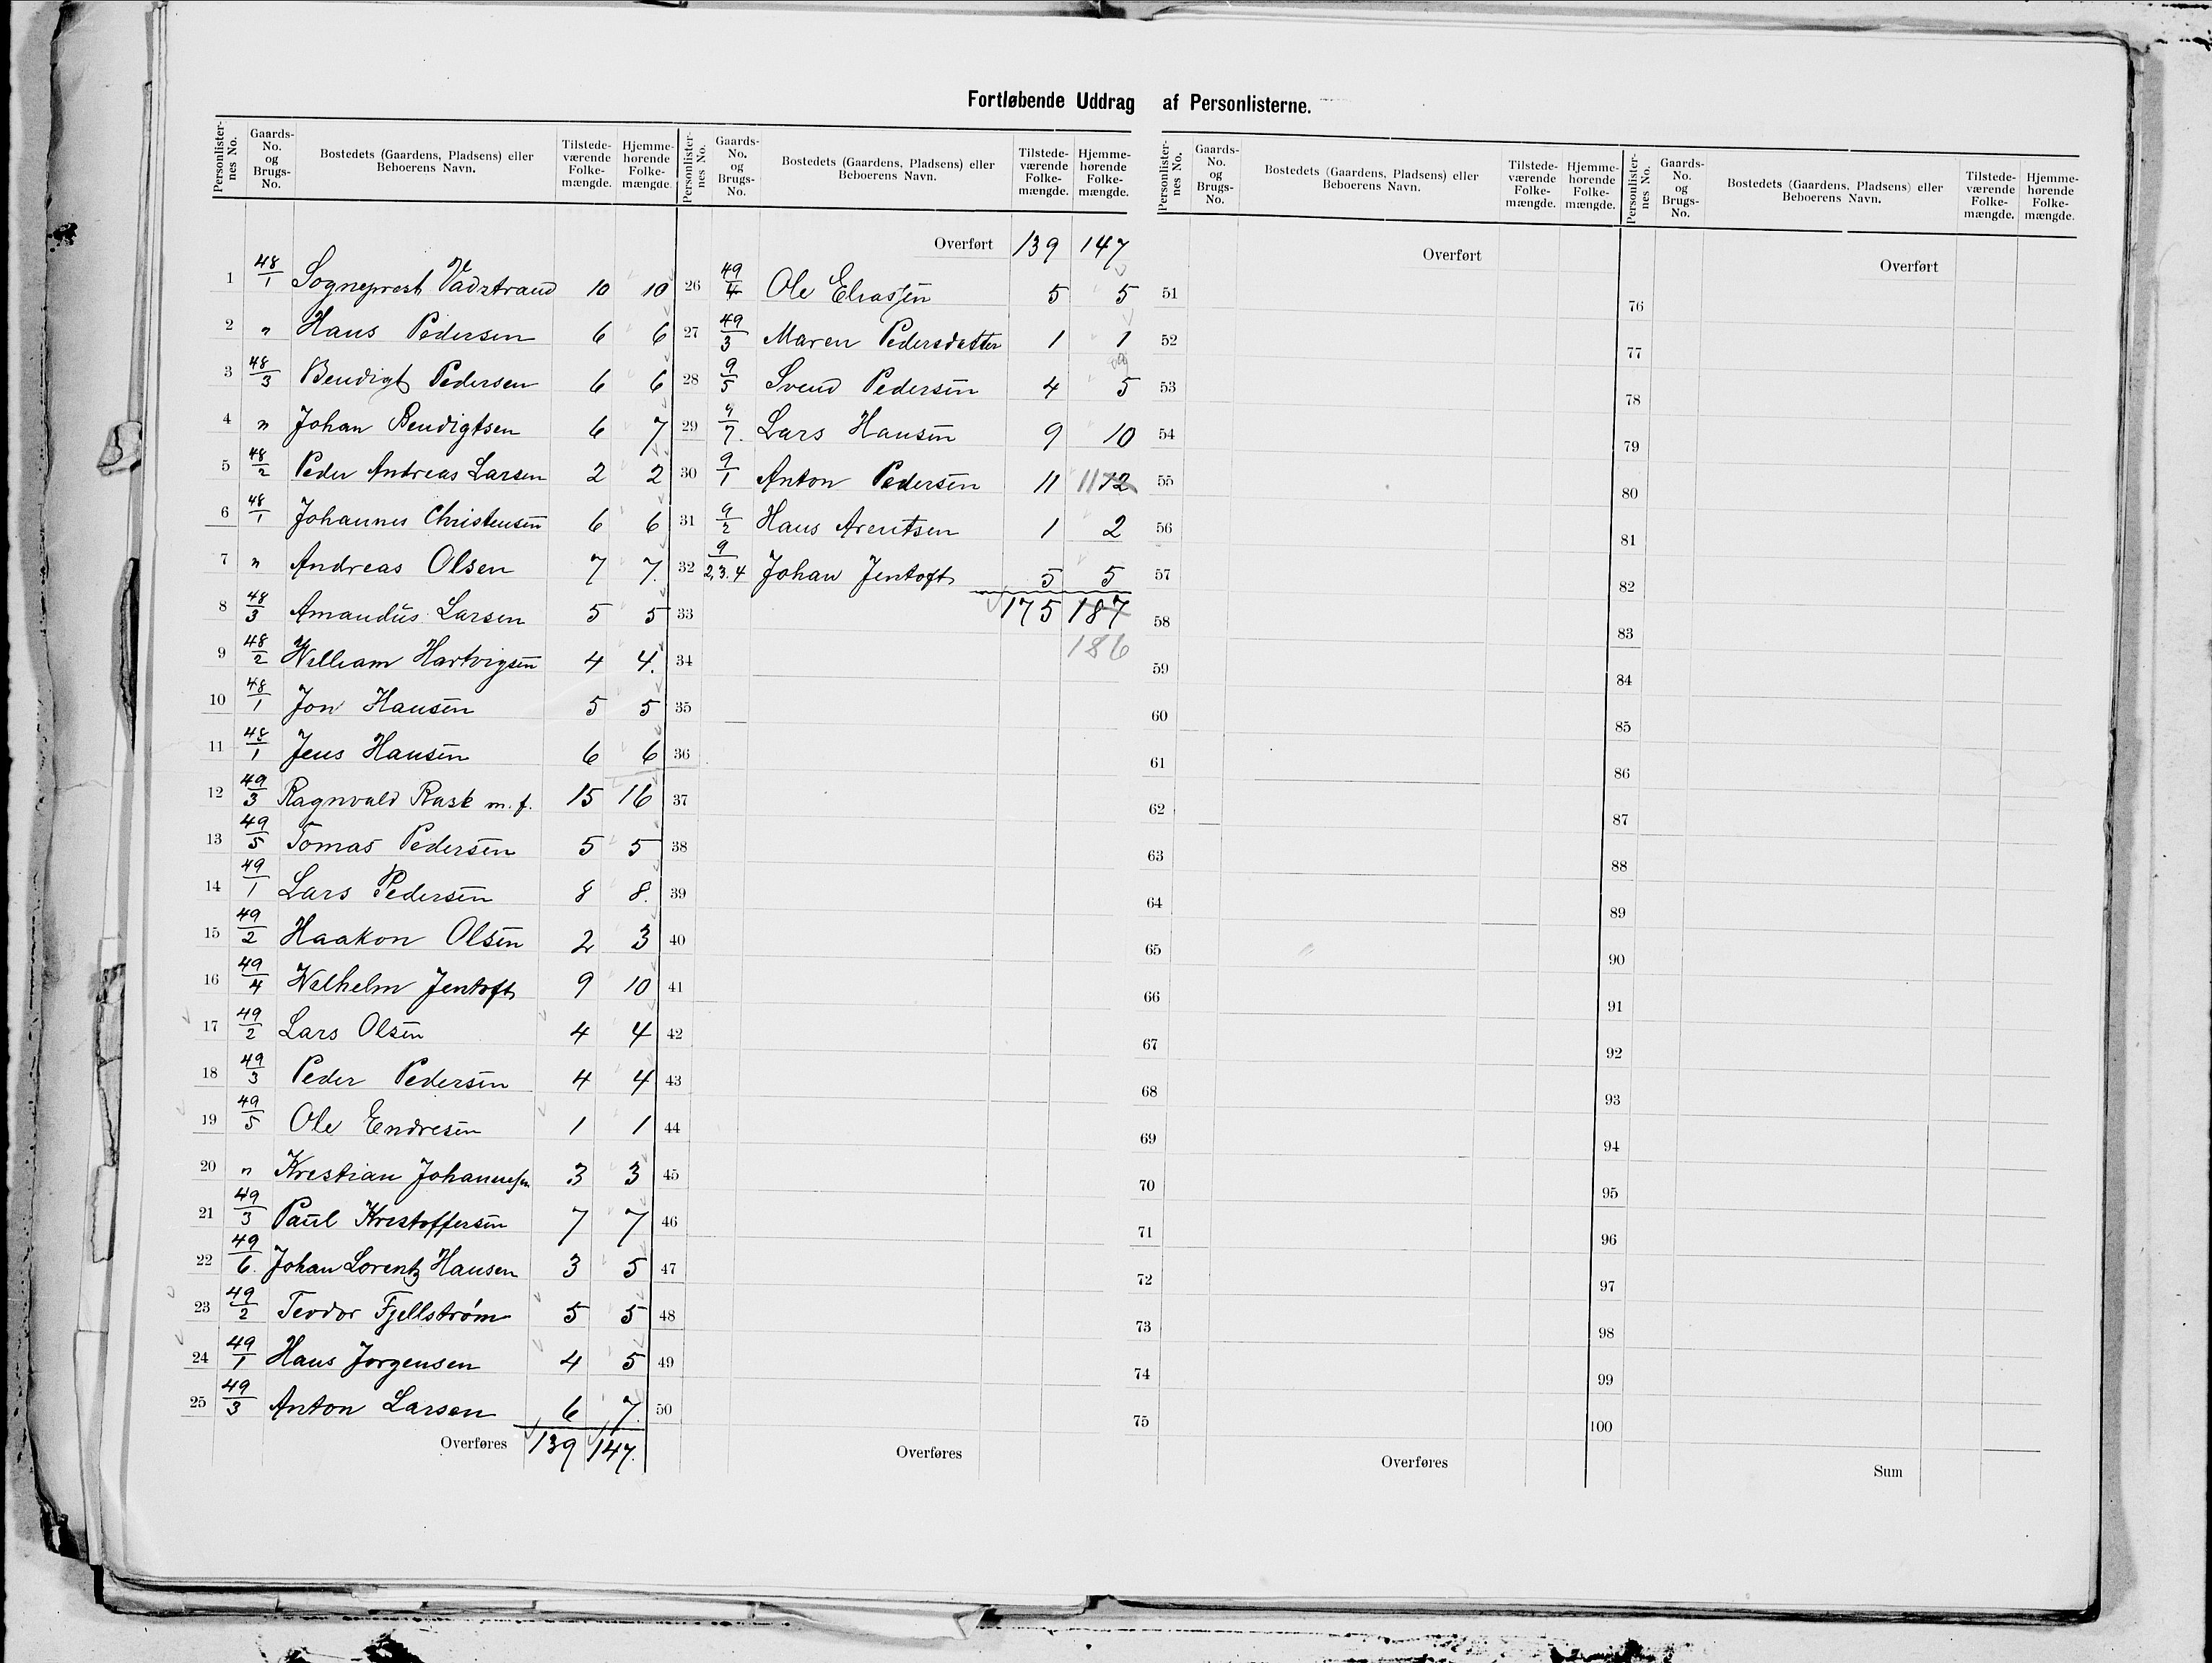 Fortløbende Uddrag af Personlisterne.
Personlister-nes No. Gaards-No. og Brugs-No. Bostedets (Gaardens, Pladsens) eller Beboerens Navn. Tilstede-værende Folke-mængde. Hjemme-hørende Folke-mængde.
1 48/1 Sogneprest Vadstrand 10 10
2 " Hans Pedersen 6 6
3 48/3 Bendigt Pedersen 6 6
4 " Johan Bendigtsen 6 7
5 48/2 Peder Andreas Larsen 2 2
6 48/1 Johannes Christensen 6 6
7 " Andreas Olsen 7 7.
8 48/3 Amandus Larsen 5 5
9 48/2 William Hartvigsen 4 4.
10 48/1 Jon Hansen 5 5
11 48/1 Jens Hansen 6 6
12 49/3 Ragnvald Rask m. f. 15 16
13 49/5 Tomas Pedersen 5 5
14 49/1 Lars Pedersen 8 8.
15 49/2 Haakon Olsen 2 3
16 49/4 Wilhelm Jentoft 9 10
17 49/2 Lars Olsen 4 4
18 49/3 Peder Pedersen 4 4
19 49/5 Ole Endresen 1 1
20 " Kristian Johannessen 3 3
21 49/3 Paul Kristoffersen 7 7
22 49/6. Johan Lorentz Hansen 3 5
23 49/2 Teodor Fjellstrøm 5 5
24 49/1 Hans Jørgensen 4 5
25 49/3 Anton Larsen 6 7.
Overføres 139 147.
Personlister-nes No. Gaards-No. og Brugs-No. Bostedets (Gaardens, Pladsens) eller Beboerens Navn. Tilstede-værende Folke-mængde. Hjemme-hørende Folke-mængde.
Overført 139 147
26 49/4 Ole Eliassen 5 5
27 49/3 Maren Pedersdatter 1 1
28 9/5 Svend Pedersen 4 5
29 9/7. Lars Hansen 9 10
30 9/1 Anton Pedersen 11 11 12
31 9/2 Hans Arentsen 1 2
32 9/2,3.4 Johan Jentoft 5 5
33 175 187
34 186
35
36
37
38
39
40
41
42
43
44
45
46
47
48
49
50
Overføres
Personlister-nes No. Gaards-No. og Brugs-No. Bostedets (Gaardens, Pladsens) eller Beboerens Navn. Tilstede-værende Folke-mængde. Hjemme-hørende Folke-mængde.
Overført
51
52
53
54
55
56
57
58
59
60
61
62
63
64
65
66
67
68
69
70
71
72
73
74
75
Overføres
Personlister-nes No. Gaards-No. og Brugs-No. Bostedets (Gaardens, Pladsens) eller Beboerens Navn. Tilstede-værende Folke-mængde. Hjemme-hørende Folke-mængde.
Overført
76
77
78
79
80
81
82
83
84
85
86
87
88
89
90
91
92
93
94
95
96
97
98
99
100
Sum